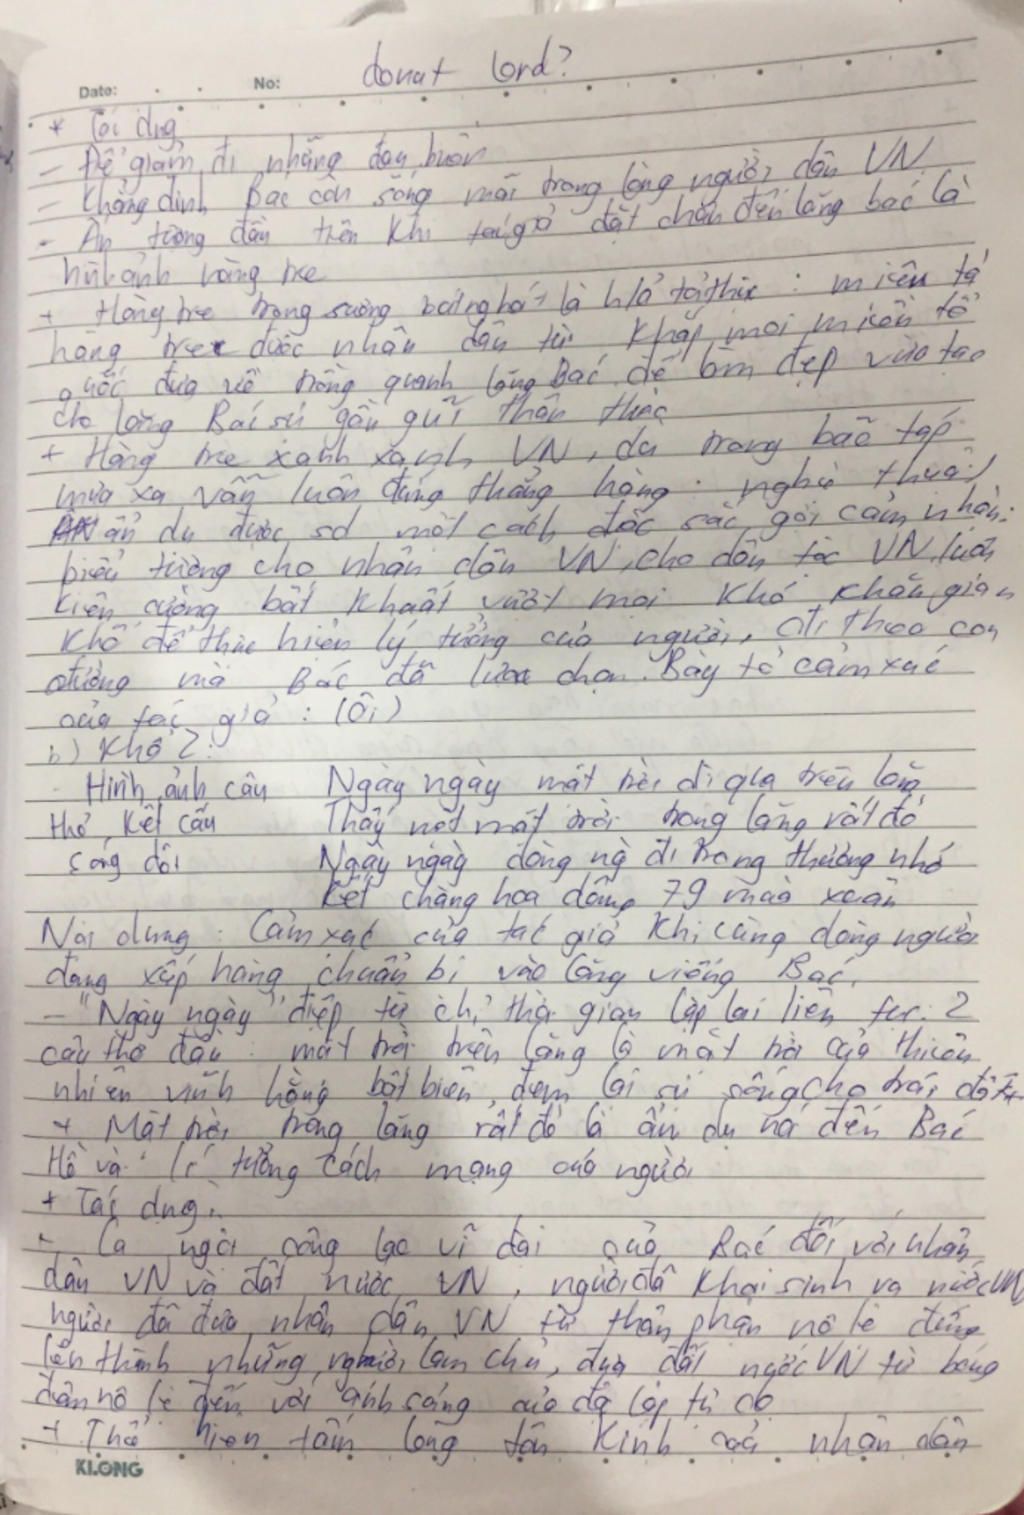 donat lord?
Date: No:
* Tác dụng
- Để giảm đi những đau buồn
- Khẳng định Bác còn sống mãi trong lòng người dân VN
- Ấn tượng đầu tiên khi tác giả đặt chân đến lăng bác là
hình ảnh hàng tre
+ Hàng tre trong sương bát ngát là h/ả tả thực: miêu tả
hàng tre được nhân dân từ khắp mọi miền tổ
quốc đưa về trồng quanh lăng Bác để làm đẹp vừa tạo
cho lăng Bác sự gần gũi thân thuộc
+ Hàng tre xanh xanh VN, dù trong bão táp
mưa xa vẫn luôn đứng thẳng hàng: nghệ thuật
ẩn dụ được sd một cách đặc sắc, gợi cảm nhận:
biểu tượng cho nhân dân VN, cho dân tộc VN luôn
kiên cường bất khuất vượt mọi khó khăn gian
khổ để thực hiện lý tưởng của người, đi theo con
đường mà Bác đã lựa chọn. Bày tỏ cảm xúc
của tác giả: (Ôi)
b) Khổ 2:
- Hình ảnh câu Ngày ngày mặt trời đi qua trên lăng
thơ, kết cấu Thấy một mặt trời trong lăng rất đỏ
sóng đôi Ngày ngày dòng ng đi trong thương nhớ
Kết chàng hoa dâng 79 mùa xuân
Nội dung: Cảm xúc của tác giả khi cùng dòng người
đang xếp hàng chuẩn bị vào lăng viếng Bác.
- "Ngày ngày" điệp từ chỉ thời gian lặp lại liên tục. 2
câu thơ đầu: mặt trời trên lăng là mặt trời của thiên
nhiên vĩnh hằng bất biến, đem lại sự sống cho trái đất
+ Mặt trời trong lăng rất đỏ là ẩn dụ nói đến Bác
Hồ và lí tưởng cách mạng của người
+ Tác dụng:
- Ca ngợi công lao vĩ đại của Bác đối với nhân
dân VN và đất nước VN, người đã khai sinh ra nước VN
người đã đưa nhân dân VN từ thân phận nô lệ đứng
lên thành những người làm chủ, đưa đất nước VN từ bóng
đêm nô lệ đến với ánh sáng của độ lập tự do
+ Thể hiện tấm lòng tôn kính của nhân dân
KLONG